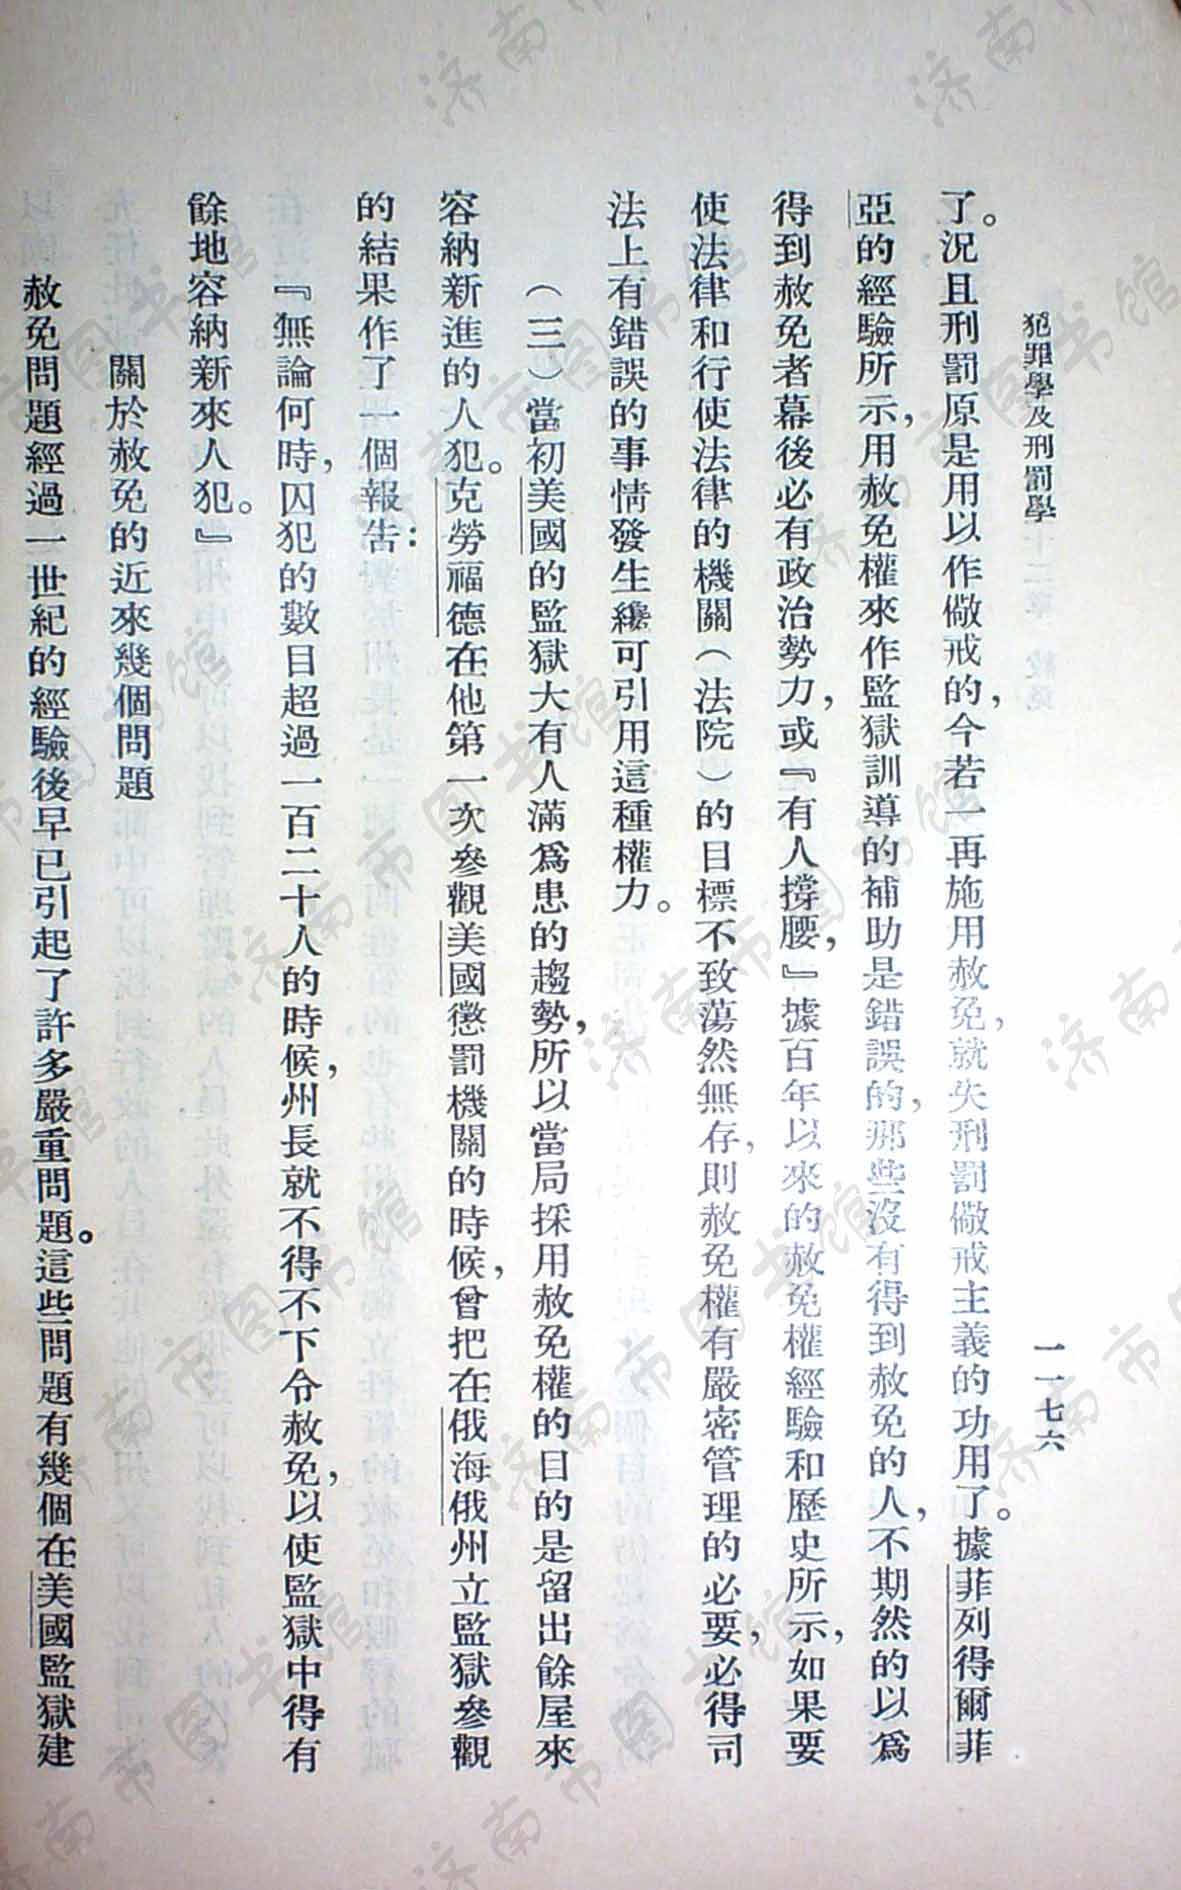 犯罪學及刑罰學
一一七六
了。況且刑罰原是用以作儆戒的，今若一再施用赦免，就失刑罰儆戒主義的功用了。據菲列得爾菲
亞的經驗所示，用赦免權來作監獄訓導的補助是錯誤的，那些沒有得到赦免的人，不期然的以爲
得到赦免者幕後必有政治勢力，或『有人撐腰，』據百年以來的赦免權經驗和歷史所示，如果要
使法律和行使法律的機關（法院）的目標不致蕩然無存，則赦免權有嚴密管理的必要，必得司
法上有錯誤的事情發生纔可引用這種權力。
（三）當初美國的監獄大有人滿爲患的趨勢，所以當局採用赦免權的目的是留出餘屋來
容納新進的人犯。克勞福德在他第一次參觀美國懲罰機關的時候，曾把在俄海俄州立監獄參觀
的結果作了一個報告：
『無論何時，囚犯的數目超過一百二十人的時候，州長就不得不下令赦免，以使監獄中得有
餘地容納新來人犯。』
關於赦免的近來幾個問題
赦免問題經過一世紀的經驗後早已引起了許多嚴重問題。這些問題有幾個在美國監獄建
济南市图书馆